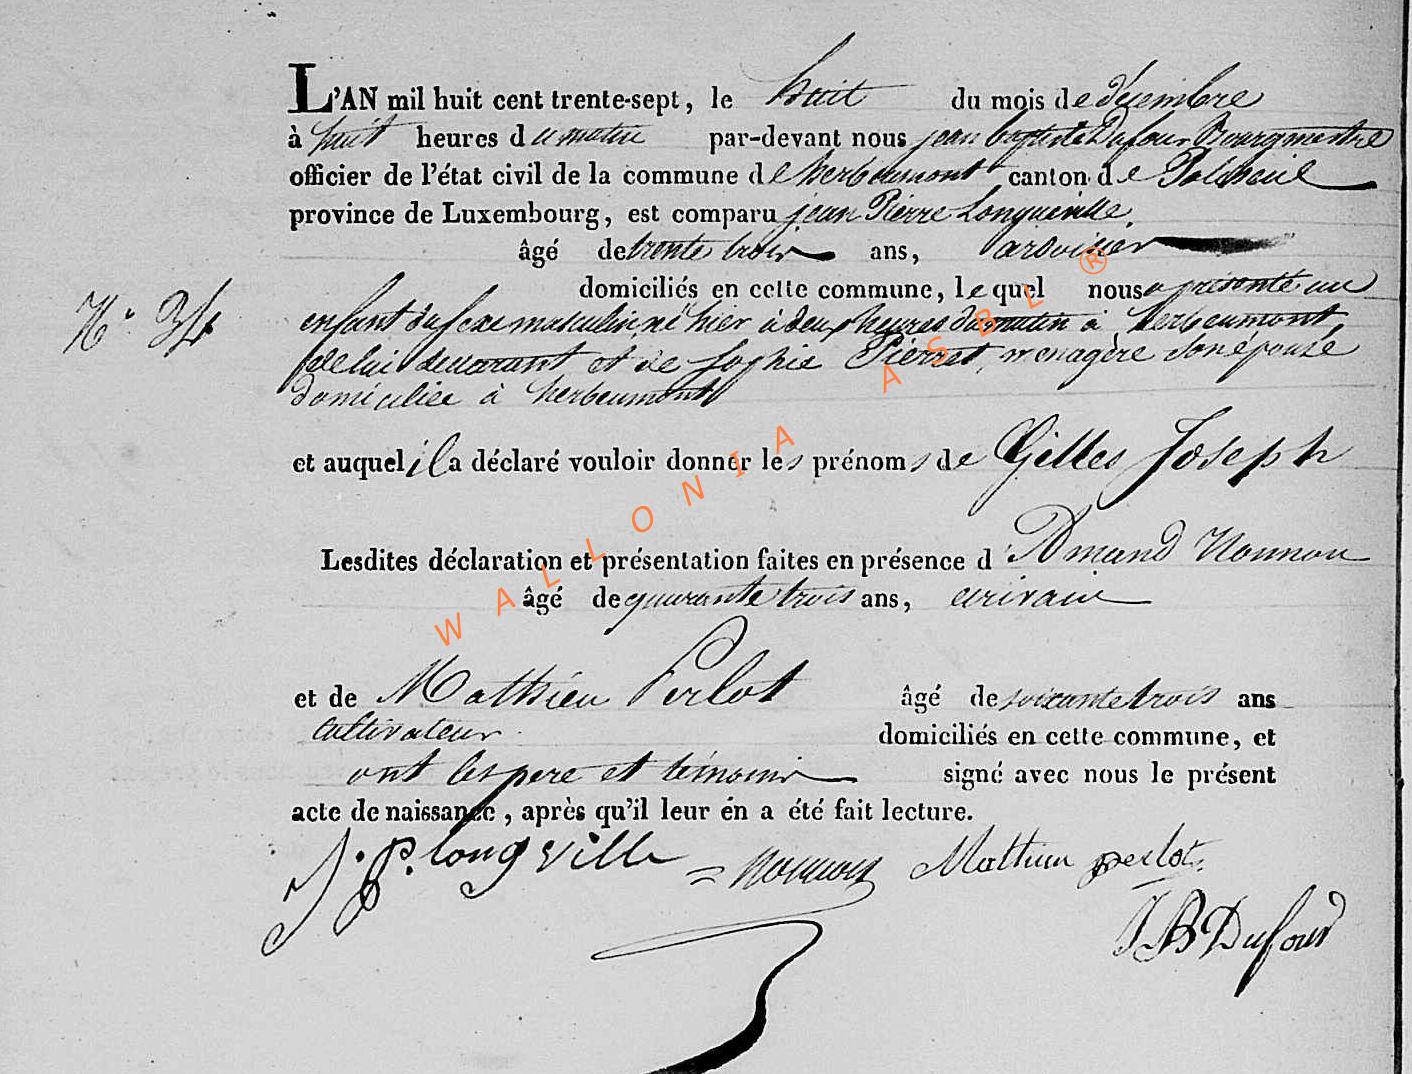 L'AN mil huit cent trente-sept, le huit du mois de décembre
à huit heures du matin par-devant nous jean baptiste Dufour Bourgmestre
officier de l'état civil de la commune de herbeumont canton de Paliseul
province de Luxembourg, est comparu jean Pierre Longueville
âgé de trente trois ans, ardoisier
domiciliés en cette commune, lequel nous a présenté un
N° 34
enfant du sexe masculin né hier à deux heures du matin à herbeumont,
de lui déclarant et de Sophie Pierret, menagère son épouse
domiciliée à herbeumont
et auquel il a déclaré vouloir donner les prénoms de Gilles Joseph
Lesdites déclaration et présentation faites en présence d'Amand Nonnon
âgé de quarante trois ans, écrivain
et de Mathieu Perlot âgé de soixante trois ans
cultivateur domiciliés en cette commune, et
ont les pere et témoins signé avec nous le présent
acte de naissance, après qu'il leur en a été fait lecture.
J. P. longville = Nonnon Mathieu perlot
JB Dufour
WALLONIA ASBL ®